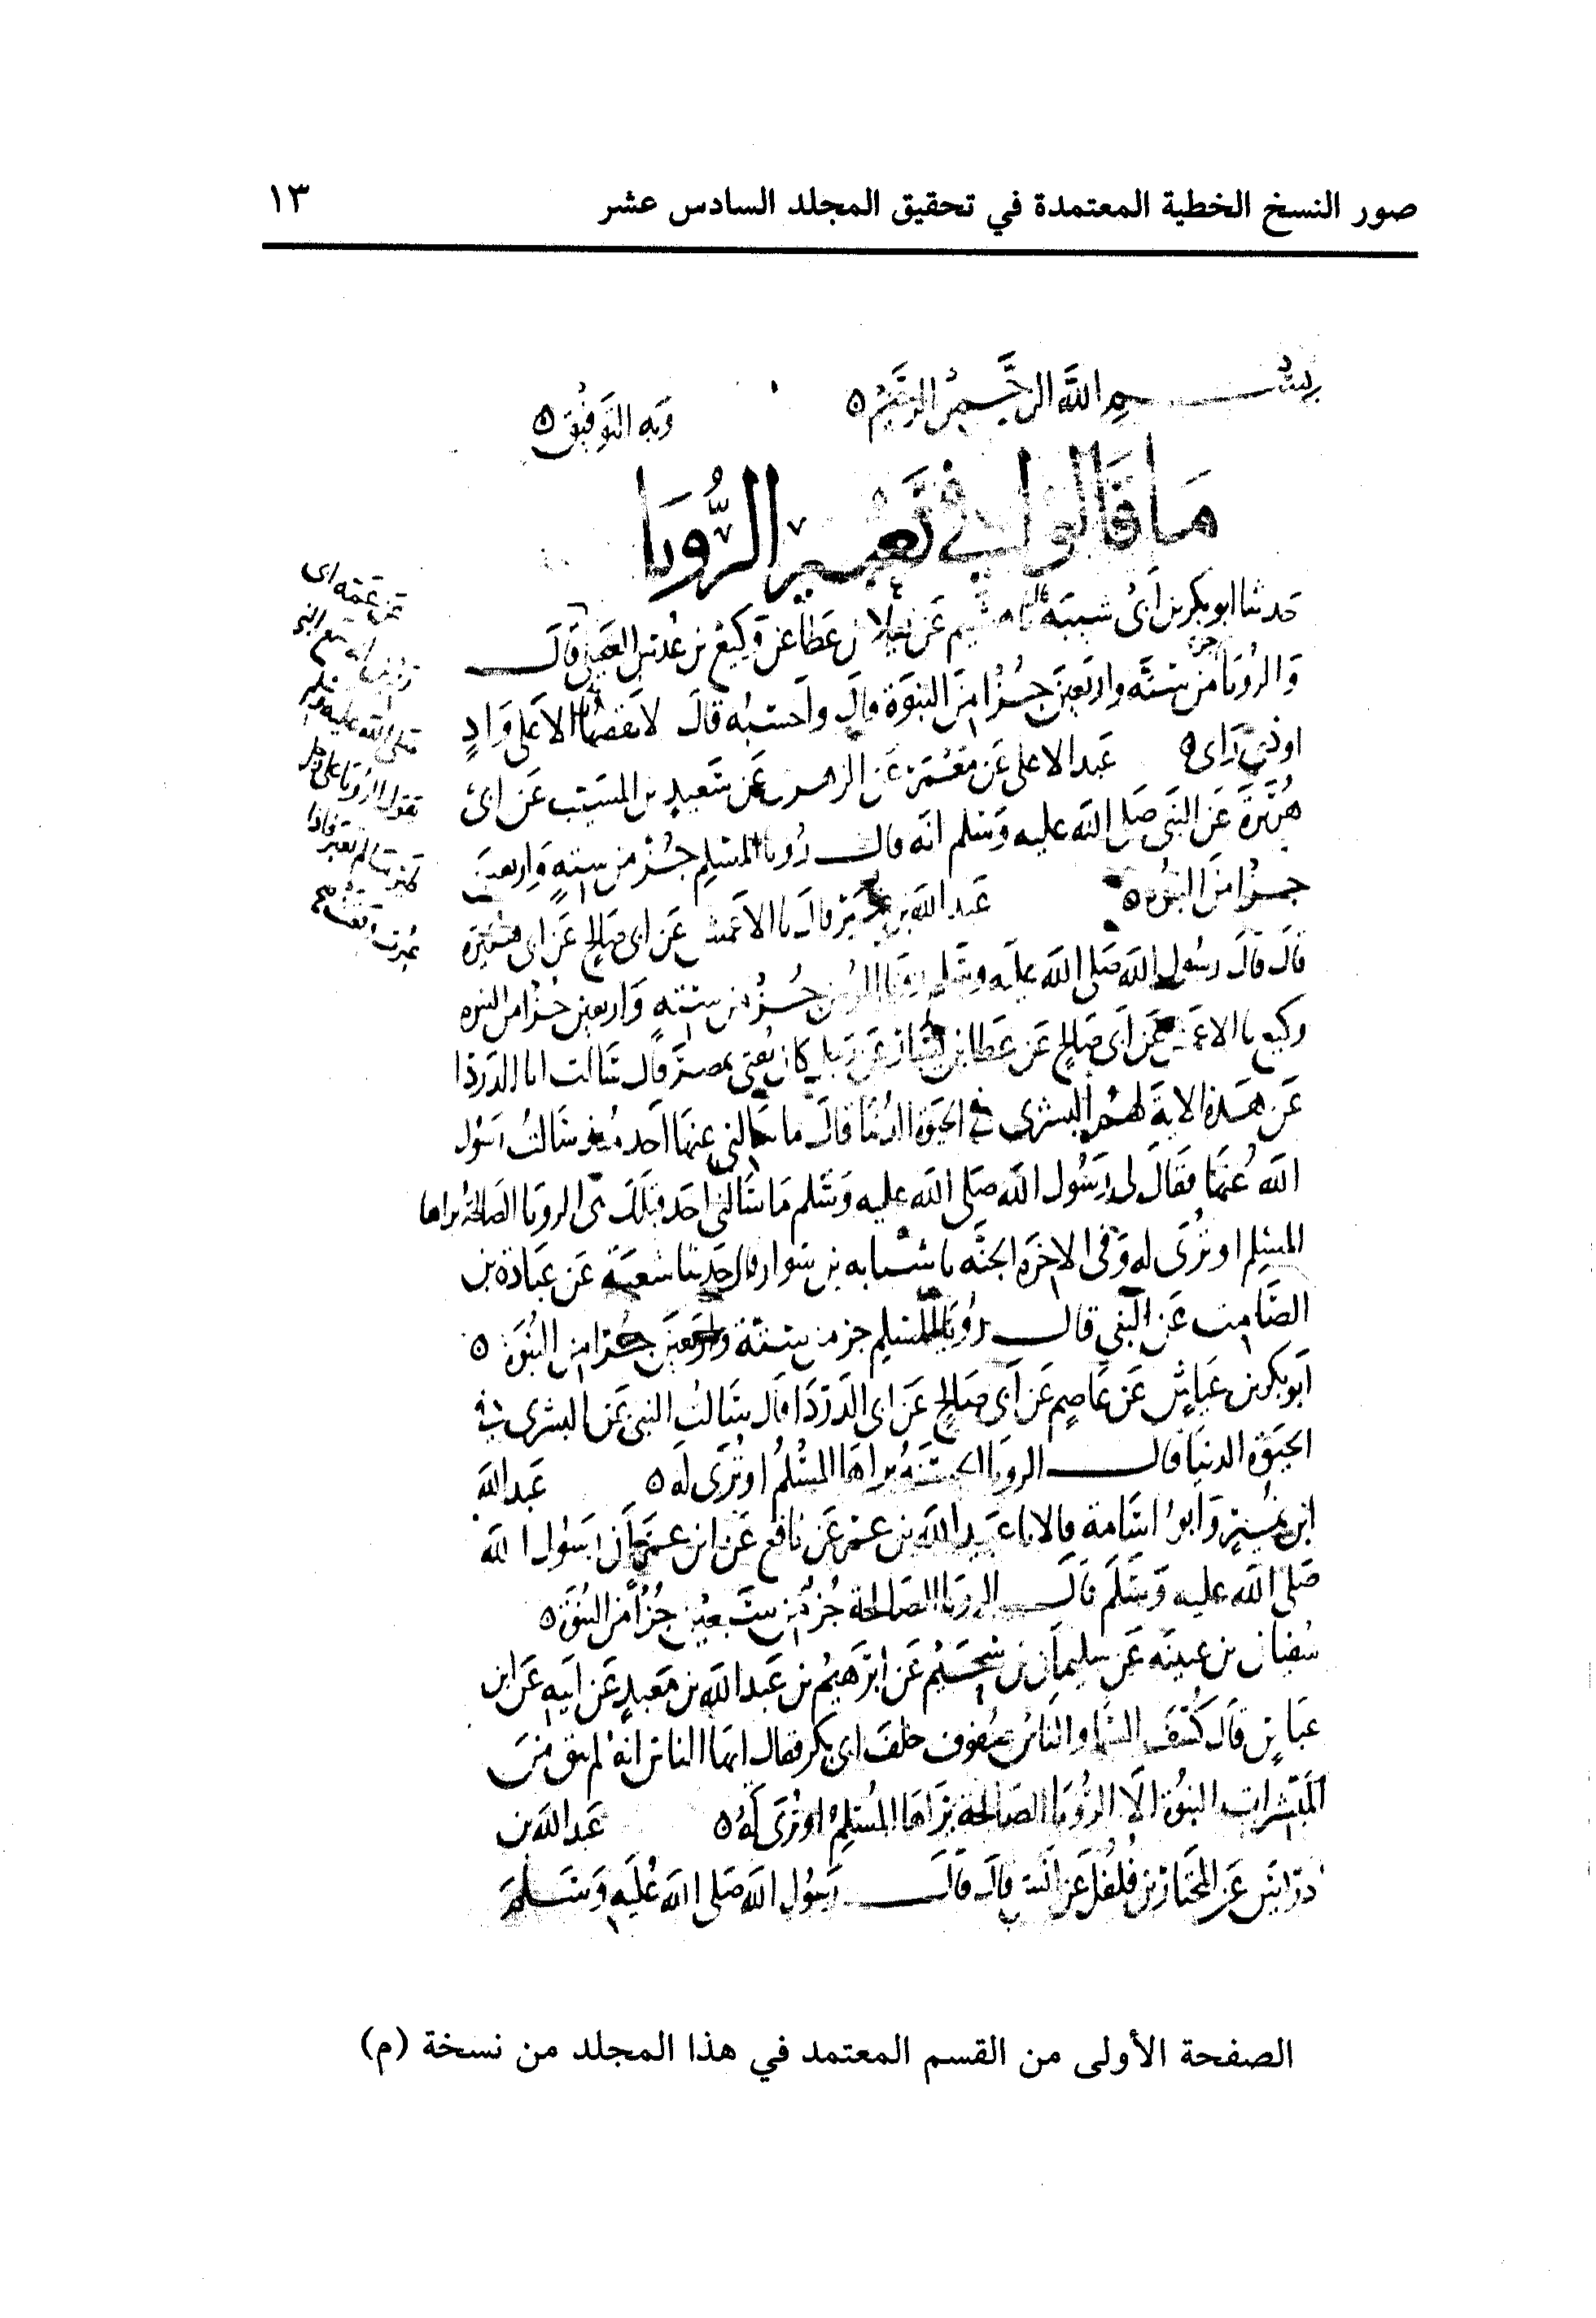 صور النسخ الخطية المعتمدة في تحقيق المجلد السادس عشر
١٣
بسم الله الرحمن الرحيم ٥
وبه التوفيق ٥
ما قالوا في تعبير الرؤيا
حدثنا ابو بكر بن أبي شيبه نا هشيم عن يعلا بن عطا عن وكيع بن عدس العقيلي قال
والرويا جزء من ستة واربعين جزا من النبوة قال واحسبه قال لا يقصها الا على واد
او ذي راى ٥ عبد الاعلى عن معمر عن الزهري عن سعيد بن المسيب عن ابي
هريرة عن النبي صلى الله عليه وسلم انه قال رويا المسلم جزء من ستة واربعين
جزا من النبوه ٥ عبد الله بن نمير قال نا الاعمش عن ابي صالح عن ابي هريرة
قال قال رسول الله صلى الله عليه وسلم رويا المومن جزء من ستة واربعين جزا من النبوه
وكيع نا الاعمش عن أبي صالح عن عطا بن يسار عن رجل كان يفتي بمصر قال سالت ابا الدردا
عن هذه الاية لهم البشرى في الحيوة الدنيا قال ما سالني عنها احد منذ سالت رسول
الله عنها فقال لي رسول الله صلى الله عليه وسلم ما سالني احد قبلك هي الرويا الصالحة يراها
المسلم او ترى له وفي الاخره الجنه نا شبابه بن سوار قال حدثنا شعبة عن عبادة بن
الصامت عن النبي قال رويا المسلم جز من ستة واربعين جزا من النبوة ٥
أبو بكر بن عياش عن عاصم عن أبي صالح عن ابي الدردا قال سالت النبي عن البشرى في
الحيوة الدنيا قال الرويا الحسنه يراها المسلم او ترى له ٥ عبد الله
ابن نمير وابو اسامة قالا نا عبيد الله بن عمر عن نافع عن ابن عمر أن رسول الله
صلى الله عليه وسلم قال الرويا الصالحة جزء من سبعين جزا من النبوة ٥
سفيان بن عيينه عن سليمان بن سحيم عن ابرهيم بن عبد الله بن معبد عن ابيه عن ابن
عباس قال كشف الستارة والناس صفوف خلف ابي بكر فقال ايها الناس انه لم يبق من
المبشرات النبوة الا الرويا الصالحة يراها المسلم او ترى له ٥ عبد الله بن
ادريس عن المختار بن فلفل عن انس قال قال رسول الله صلى الله عليه وسلم
عن عمه ابي
رزين انه سمع النبي
صلى الله عليه وسلم
يقول الرويا على رجل
طائر ما لم تعبر فاذا
عبرت وقعت صح
الصفحة الأولى من القسم المعتمد في هذا المجلد من نسخة (م)